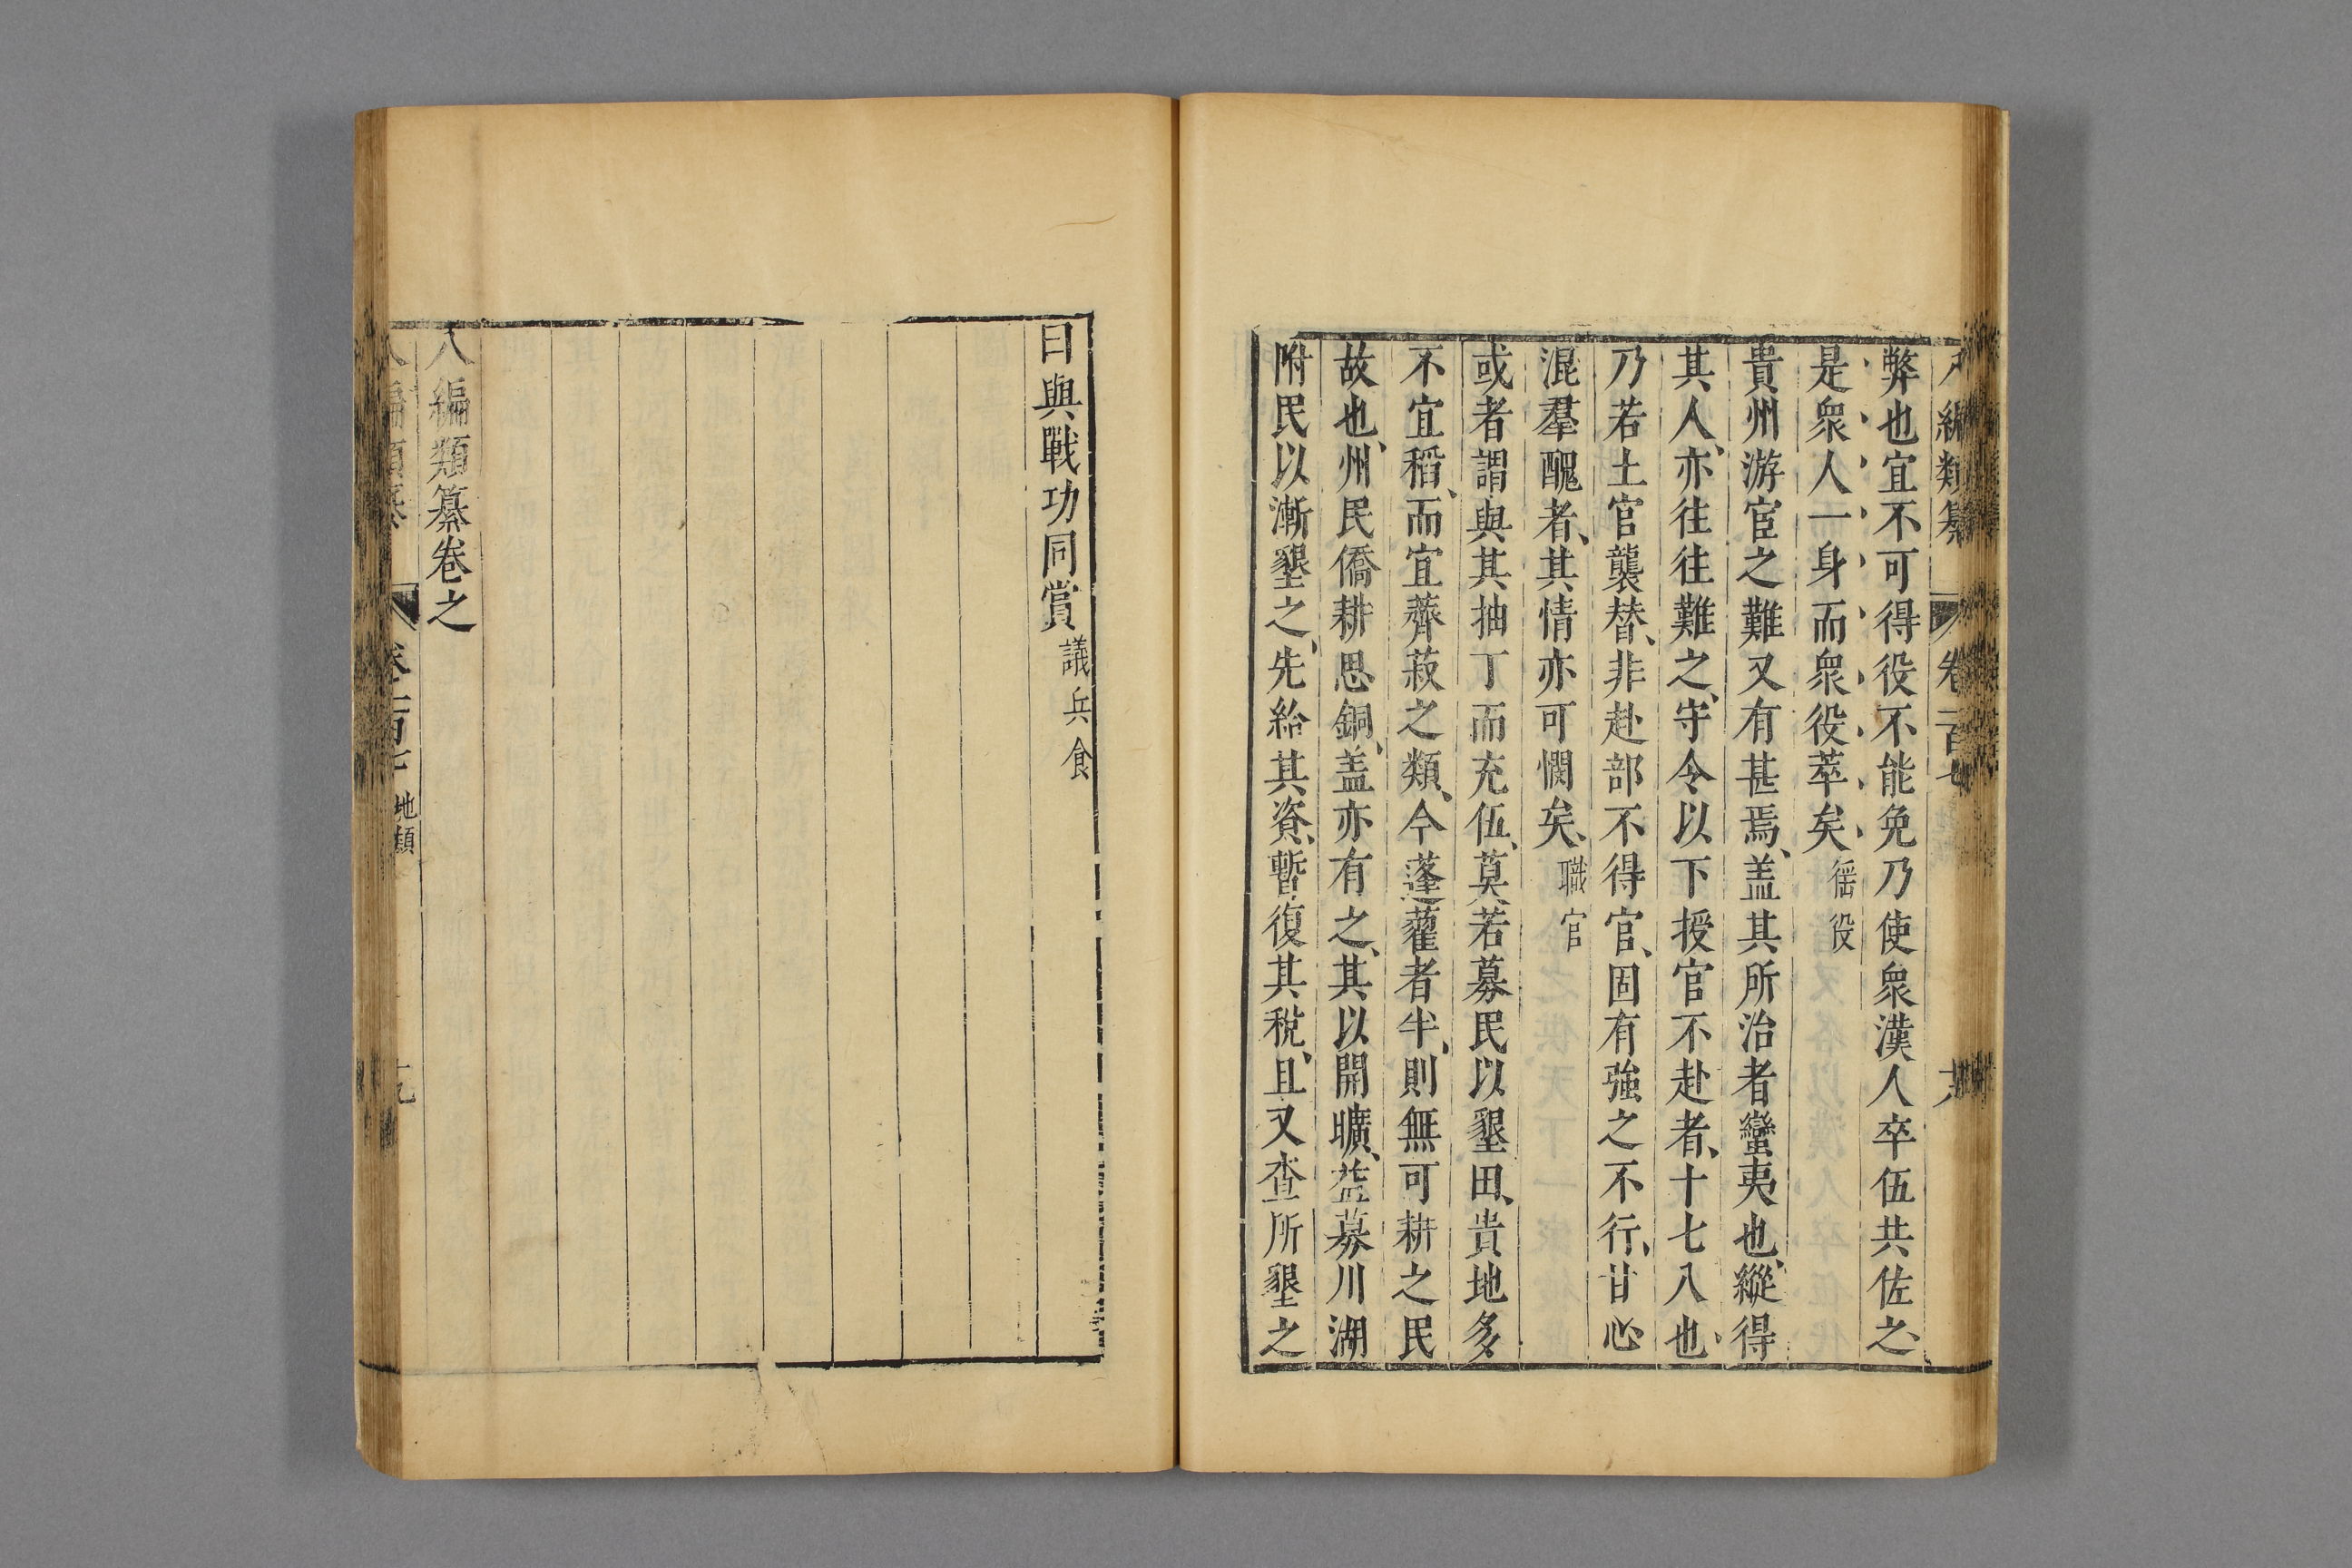 八編類纂 卷一百七 十八
弊也宜不可得役不能免乃使衆漢人卒伍共佐之、
是衆人一身而衆役萃矣、徭役
貴州游宦之難又有甚焉、盖其所治者蠻夷也、縱得
其人、亦往往難之、守令以下授官不赴者、十七八也、
乃若土官襲替、非赴部不得官、固有強之不行、甘心
混羣醜者、其情亦可憫矣、職官
或者謂與其抽丁而充伍、莫若募民以墾田、貴地多
不宜稻、而宜薺菽之類、今蓬藋者半、則無可耕之民
故也、州民僑耕思銅、盖亦有之、其以開曠、益募川湖
附民以漸墾之、先給其資、暫復其稅、且又查所墾之
日與戰功同賞議兵食
八編類纂卷之
地類 十九